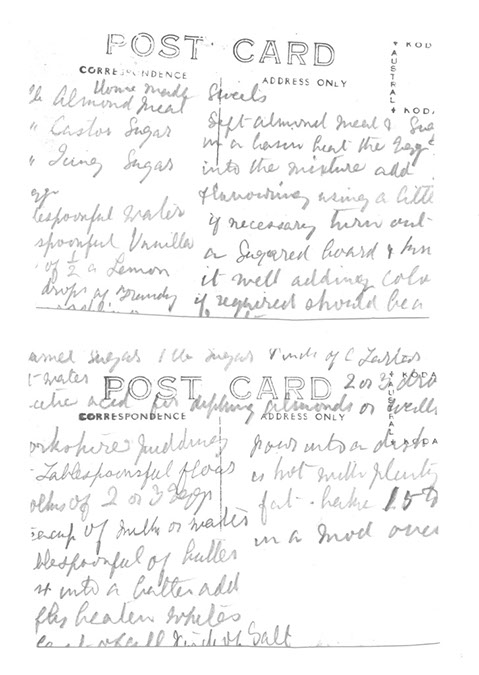 POST CARD
KOD
AUSTRAL
CORRESPONDENCE
ADDRESS ONLY
KODA
Home Made Sweets
lb Almond Meal
" Castor Sugar
" Icing Sugar
eggs
lespoonful water
spoonful Vanilla
of ½ a Lemon
drops of Brandy
Sift almond meal & Sug
in a basin beat the eggs
into the mixture add
flavouring using a little
if necessary turn out
on Sugared board & kn
it well adding colo
if required should be a
sugar 1 lb sugar Pinch of C Tartar
water 2 or 3 dro
acid for dipping almonds or
POST CARD
AUSTRAL
KODA
CORRESPONDENCE
ADDRESS ONLY
KODA
orkshire Pudding
Tablespoonsful flour
olks of 2 or 3 Eggs
eacup of milk or water
blespoonful of butter
into a batter add
beaten whites
Pinch of Salt
pour into a dish
is hot with plenty
fat. bake 15 to
in a mod oven